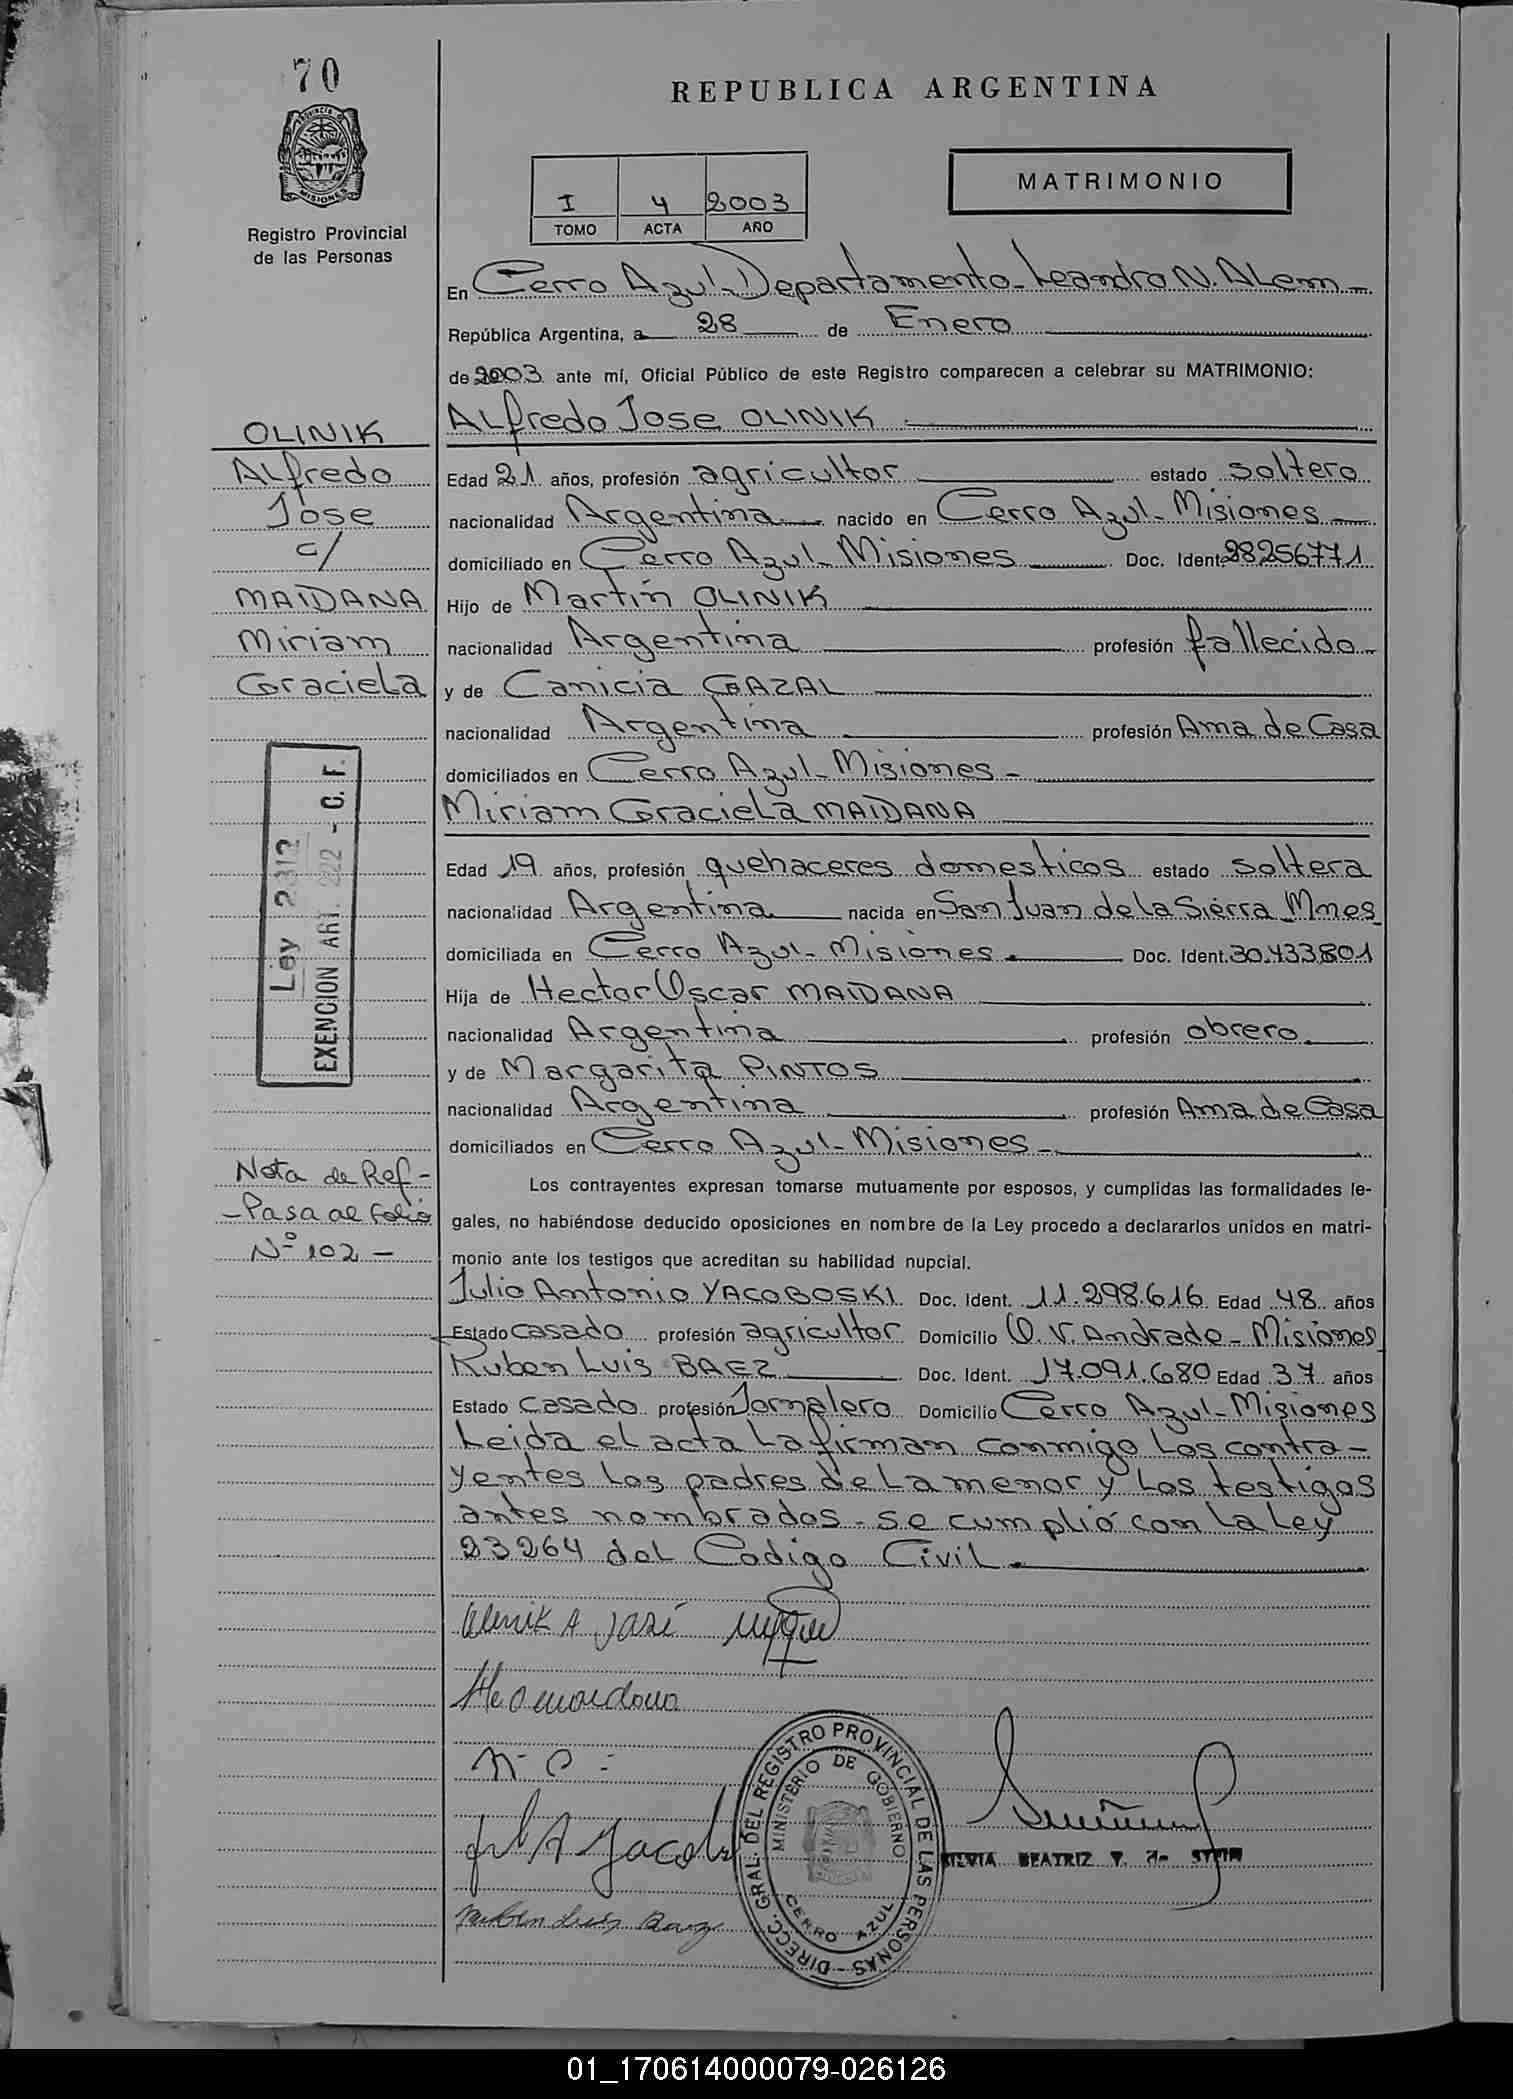 70
REPUBLICA ARGENTINA
MATRIMONIO
I 4 2003
TOMO ACTA AÑO
MISIONES
Registro Provincial
de las Personas
En Cerro Azul-Departamento-Leandro N. ALem-
República Argentina, a 28 de Enero
de 2003 ante mí, Oficial Público de este Registro comparecen a celebrar su MATRIMONIO:
ALfredo Jose OLINIK
OLINIK
ALfredo
Jose
c/
MAIDANA
Miriam
GracieLa
Edad 21 años, profesión agricultor estado soltero
nacionalidad Argentina nacido en Cerro Azul-Misiones
domiciliado en Cerro Azul-Misiones Doc. Ident. 28256771
Hijo de Martin OLINIK
nacionalidad Argentina profesión fallecido
y de Canicia GAZAL
nacionalidad Argentina profesión Ama de Casa
domiciliados en Cerro Azul-Misiones-
Miriam GracieLa MAIDANA
Edad 19 años, profesión quehaceres domesticos estado soltera
nacionalidad Argentina nacida en San Juan de la Sierra Mnes
domiciliada en Cerro Azul-Misiones Doc. Ident. 30.433.801
Hija de Hector Oscar MAIDANA
nacionalidad Argentina profesión obrero
y de Margarita PINTOS
nacionalidad Argentina profesión Ama de Casa
domiciliados en Cerro Azul-Misiones-
Ley 2312
EXENCION ART. 222 - C. F.
Nota de Ref-
-Pasa al Folio
Nº 102-
Los contrayentes expresan tomarse mutuamente por esposos, y cumplidas las formalidades le-
gales, no habiéndose deducido oposiciones en nombre de la Ley procedo a declararlos unidos en matri-
monio ante los testigos que acreditan su habilidad nupcial.
Julio Antonio YACOBOSKI Doc. Ident. 11.298.616 Edad 48 años
Estado casado profesión agricultor Domicilio O. V. Andrade-Misiones
Ruben Luis BAEZ Doc. Ident. 17.091.680 Edad 37 años
Estado casado profesión Jornalero Domicilio Cerro Azul-Misiones
Leida el acta La firman conmigo Los contra-
yentes Los padres de La menor y Los testigos
antes nombrados-se cumplió con La Ley
23264 del Codigo Civil.
Olinik A José
M-P-
Ruben Luis Baez
DIRECC. GRAL. DEL REGISTRO PROVINCIAL DE LAS PERSONAS
MINISTERIO DE GOBIERNO
CERRO AZUL
SILVIA BEATRIZ
01_170614000079-026126